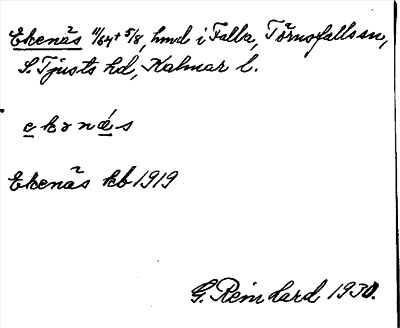 Ekenäs 11/64 + 5/8, hmd i Falla, Törnsfalls sn,
S. Tjusts hd, Kalmar l.
ekǝnä́s
Ekenäs kb 1919
G. Reinhard 1930.